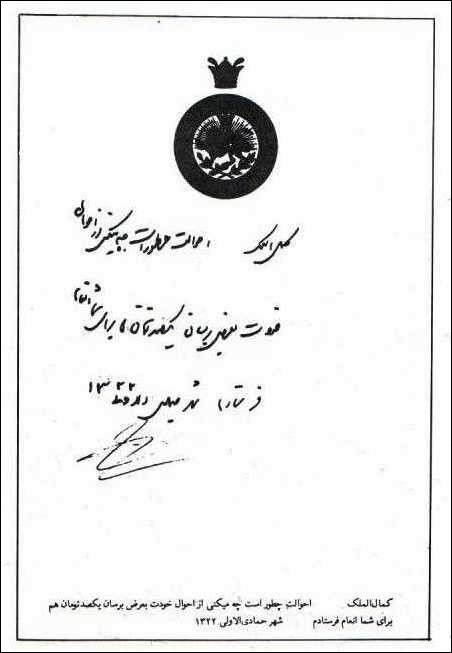 کمال الملک احوالت چطور است چه میکنی از احوال
خودت بعرض برسان یکصد تومان هم برای شما انعام
فرستادم شهر جمادی الاولی ۱۳۲۲
کمال‌الملک احوالت چطور است چه میکنی از احوال خودت بعرض برسان یکصدتومان هم
برای شما انعام فرستادم شهر حمادی‌الاولی ۱۳۲۲